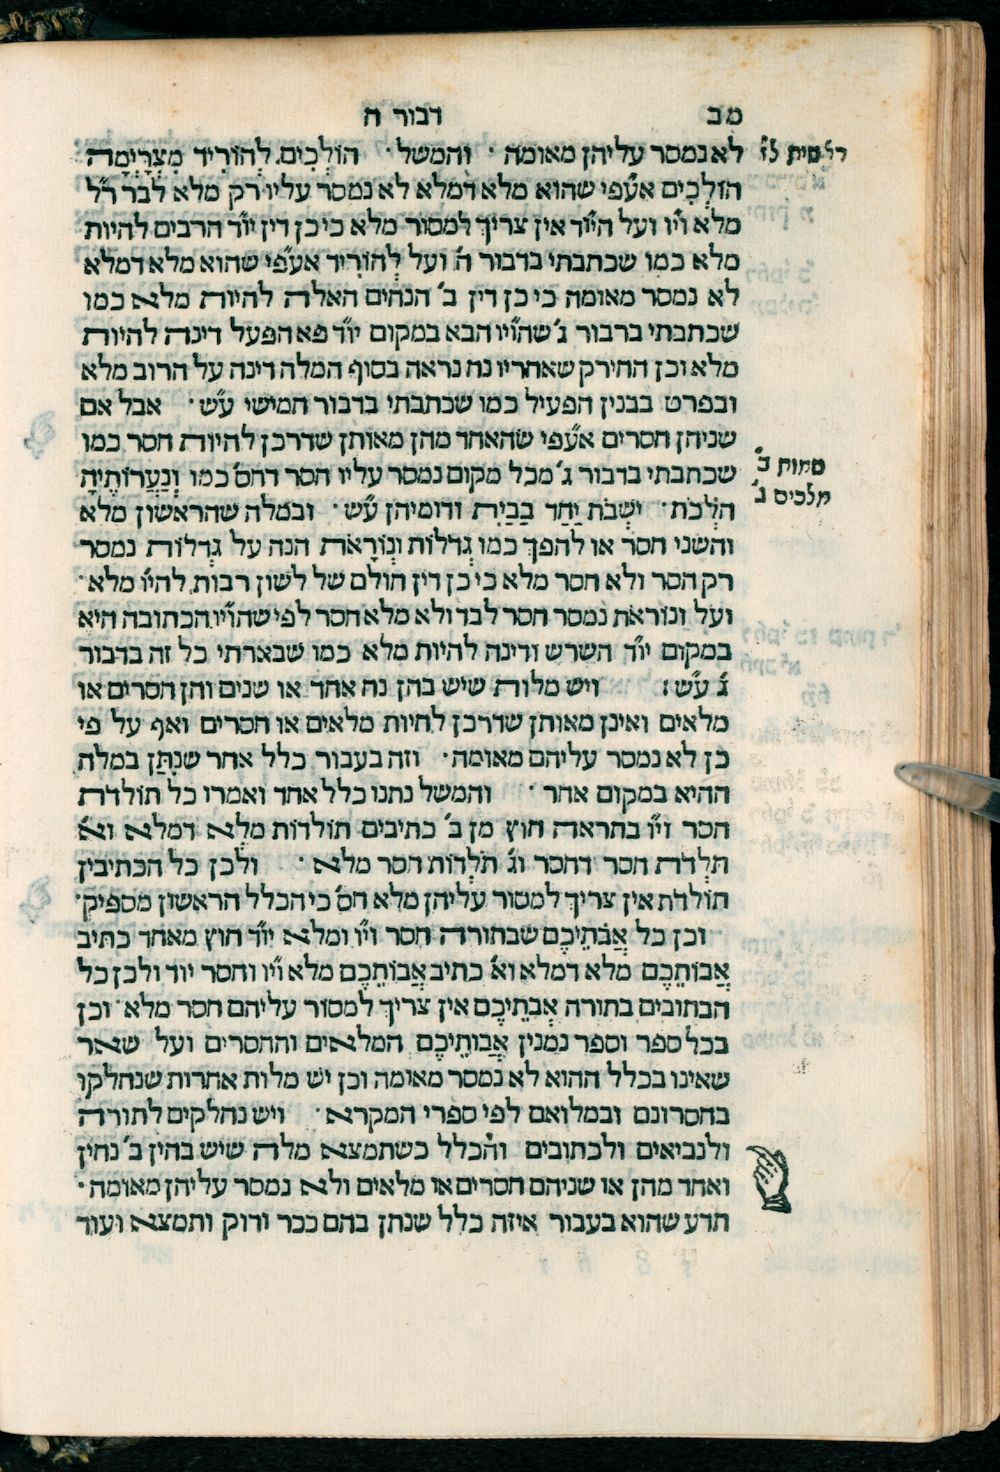 מב דבור ה
לא נמסר עליהן מאומה · והמשל · הוֹלְכִים לְהוֹרִיד מִצְרָיְמָה
בראשית לז
הוֹלְכִים אע״פי שהוא מלא דמלא לא נמסר עליו רק מלא לבד ר״ל
מלא וי״ו ועל היו״ד אין צריך למסור מלא כי כן דין יו״ד הרבים להיות
מלא כמו שכתבתי בדבור ה׳ ועל לְהוֹרִיד אע״פי שהוא מלא דמלא
לא נמסר מאומה כי כן דין ב׳ הנחים האלה להיות מלא כמו
שכתבתי בדבור ג׳ שהוי״ו הבא במקום יו״ד פא הפעל דינה להיות
מלא וכן החירק שאחריו נח נראה בסוף המלה דינה על הרוב מלא
ובפרט בבנין הפעיל כמו שכתבתי בדבור חמישי ע״ש · אבל אם
שניהן חסרים אע״פי שהאחד מהן מאותן שדרכן להיות חסר כמו
שכתבתי בדבור ג׳ מכל מקום נמסר עליו חסר דחס׳ כמו וְנַעֲרוֹתֶיהָ
שמות ב׳
הֹלְכֹת · יֹשְׁבֹת יַחַד בַּבַּיִת ודומיהן ע״ש · ובמלה שהראשון מלא
מלכים ג׳
והשני חסר או להפך כמו גְדֹלוֹת וְנוֹרָאֹת הנה על גְדֹלוֹת נמסר
רק חסר ולא חסר מלא כי כן דין חולם של לשון רבות להיו׳ מלא ·
ועל ונוראת נמסר חסר לבד ולא מלא חסר לפי שהוי״ו הכתובה היא
במקום יו״ד השרש ודינה להיות מלא כמו שבארתי כל זה בדבור
ג׳ ע״ש : ויש מלות שיש בהן נח אחד או שנים והן חסרים או
מלאים ואינן מאותן שדרכן להיות מלאים או חסרים ואף על פי
כן לא נמסר עליהם מאומה · וזה בעבור כלל אחר שנִתַּן במלה
ההיא במקום אחר · והמשל נתנו כלל אחד ואמרו כל תולדת
חסר וי״ו בתראה חוץ מן ב׳ כתיבים תולדות מלא דמלא וא׳
תלדת חסר דחסר וג׳ תלדות חסר מלא · ולכן כל הכתיבין
תולדת אין צריך למסור עליהן מלא חס׳ כי הכלל הראשון מספיק ·
וכן כל אֲבֹתֵיכֶם שבתורה חסר וי״ו ומלא יו״ד חוץ מאחד כתיב
אֲבוֹתֵיכֶם מלא דמלא וא׳ כתיב אֲבוֹתֵכֶם מלא וי״ו וחסר יוד ולכן כל
הכתובים בתורה אֲבֹתֵיכֶם אין צריך למסור עליהם חסר מלא · וכן
בכל ספר וספר נמנין אֲבוֹתֵיכֶם המלאים והחסרים ועל שאר
שאינו בכלל ההוא לא נמסר מאומה וכן יש מלות אחרות שנחלקו
בחסרונם ובמלואם לפי ספרי המקרא · ויש נחלקים לתורה
ולנביאים ולכתובים והכלל כשתמצא מלה שיש בהין ב׳ נחין
ואחד מהן או שניהם חסרים או מלאים ולא נמסר עליהן מאומה ·
תדע שהוא בעבור איזה כלל שנתן בהם ככר ודוק ותמצא ועוד